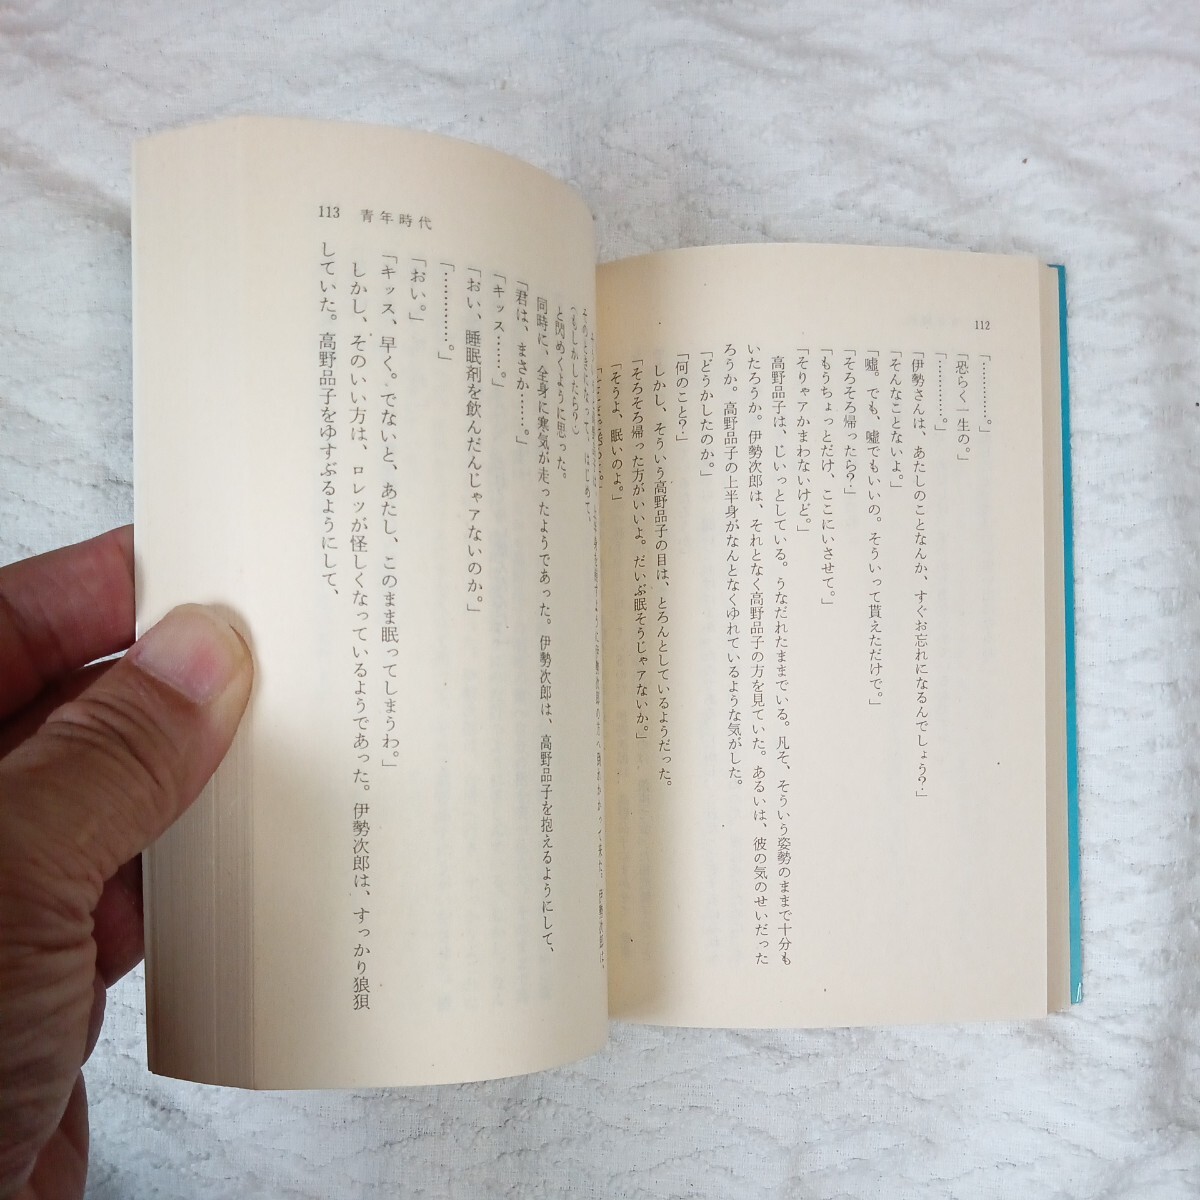 112
「…………。」
「恐らく一生の。」
「…………。」
「伊勢さんは、あたしのことなんか、すぐお忘れになるんでしょう？」
「そんなことないよ。」
「嘘。でも、嘘でもいいの。そういって貰えただけで。」
「そろそろ帰ったら？」
「もうちょっとだけ、ここにいさせて。」
「そりゃアかまわないけど。」
高野品子は、じいっとしている。うなだれたままでいる。凡そ、そういう姿勢のままで十分も
いたろうか。伊勢次郎は、それとなく高野品子の方を見ていた。あるいは、彼の気のせいだった
ろうか。高野品子の上半身がなんとなくゆれているような気がした。
「どうかしたのか。」
「何のこと？」
しかし、そういう高野品子の目は、とろんとしているようだった。
「そろそろ帰った方がいいよ。だいぶ眠そうじゃアないか。」
「そうよ、眠いのよ。」
113 青年時代
そのときになって、はじめて、
（もしかしたら？）
と閃めくように思った。
同時に、全身に寒気が走ったようであった。伊勢次郎は、高野品子を抱えるようにして、
「君は、まさか……。」
「キッス……。」
「おい、睡眠剤を飲んだんじゃアないのか。」
「…………。」
「おい。」
「キッス、早く。でないと、あたし、このまま眠ってしまうわ。」
しかし、そのいい方は、ロレツが怪しくなっているようであった。伊勢次郎は、すっかり狼狽
していた。高野品子をゆすぶるようにして、